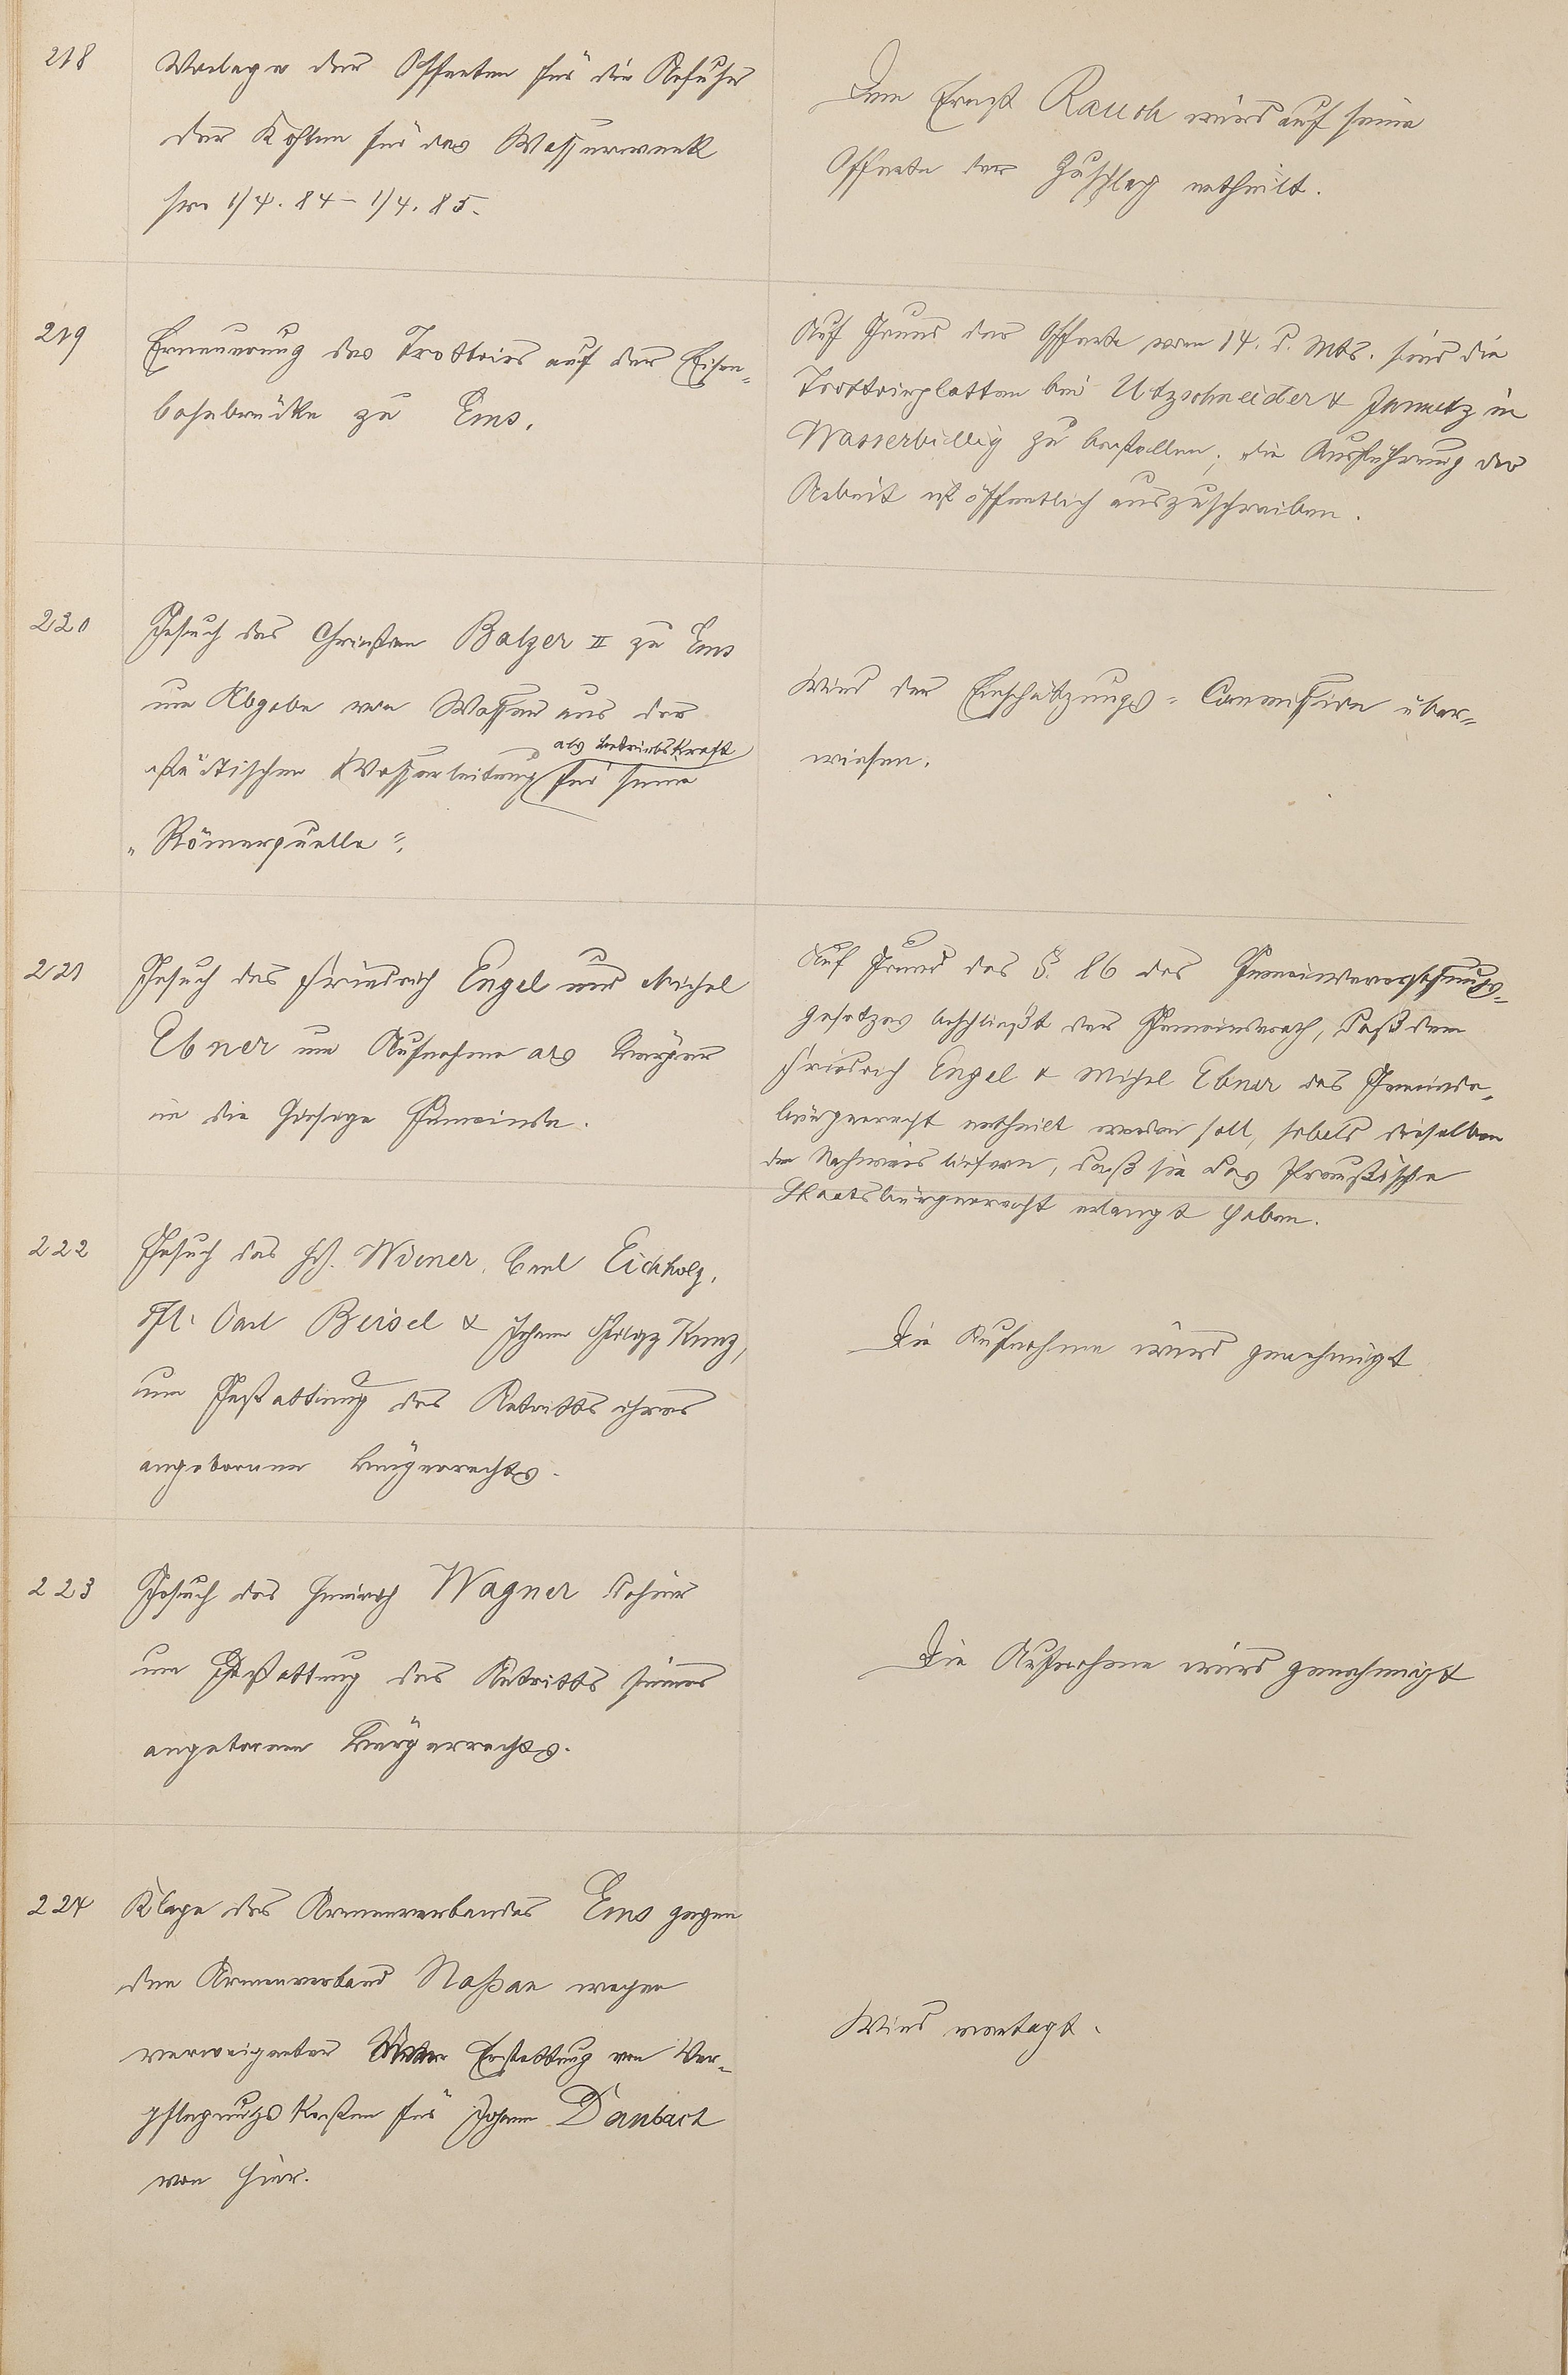 218
Vorlage der Offerten für die Anfuhr
der Kohlen für das Wasserwerk
pro 1/4. 84 – 1/4. 85.
Dem Ernst Rauch wird auf seine
Offerte der Zuschlag ertheilt.
219
Erneuerung des Trottoirs auf der Eisen-
bahnbrücke zu Ems.
Auf Grund der Offerte vom 14. d. Mts. sind die
Trottoirplatten bei Utzschneider & Jaunez in
Wasserbillig zu bestellen; die Ausführung der
Arbeit ist öffentlich auszuschreiben.
220
Gesuch des Christian Balzer II zu Ems
um Abgabe von Wasser aus der
als Betriebskraft
städtischen Wasserleitung für seine
"Römerquelle".
Wird der Einschätzungs-Commission über-
wiesen.
221
Gesuch des Friedrich Engel und Michel
Ebner um Aufnahme als Bürger
in die hiesige Gemeinde.
Auf Grund des §. 86 des Gemeindeverfassungs-
gesetzes beschließt der Gemeinderath, daß dem
Friedrich Engel & Michel Ebner das Gemeinde-
bürgerrecht ertheilt werden soll, sobald dieselben
den Nachweis liefern, daß sie das Preußische
Staatsbürgerrecht erlangt haben.
222
Gesuch des Hch. Wiemer, Carl Eichholz,
Carl Beisel & Johann Philipp Kunz,
um Gestattung des Antritts ihres
angebornen Bürgerrechts.
Die Aufnahme wird genehmigt
223
Gesuch des Heinrich Wagner dahier
um Gestattung des Antritts seines
angebornen Bürgerrechts.
Die Aufnahme wird genehmigt
224
Klage des Armenverbandes Ems gegen
den Armenverband Naßau wegen
verweigerter Erstattung von Ver-
pflegungskosten für Johann Daubach
von hier.
Wird vertagt.